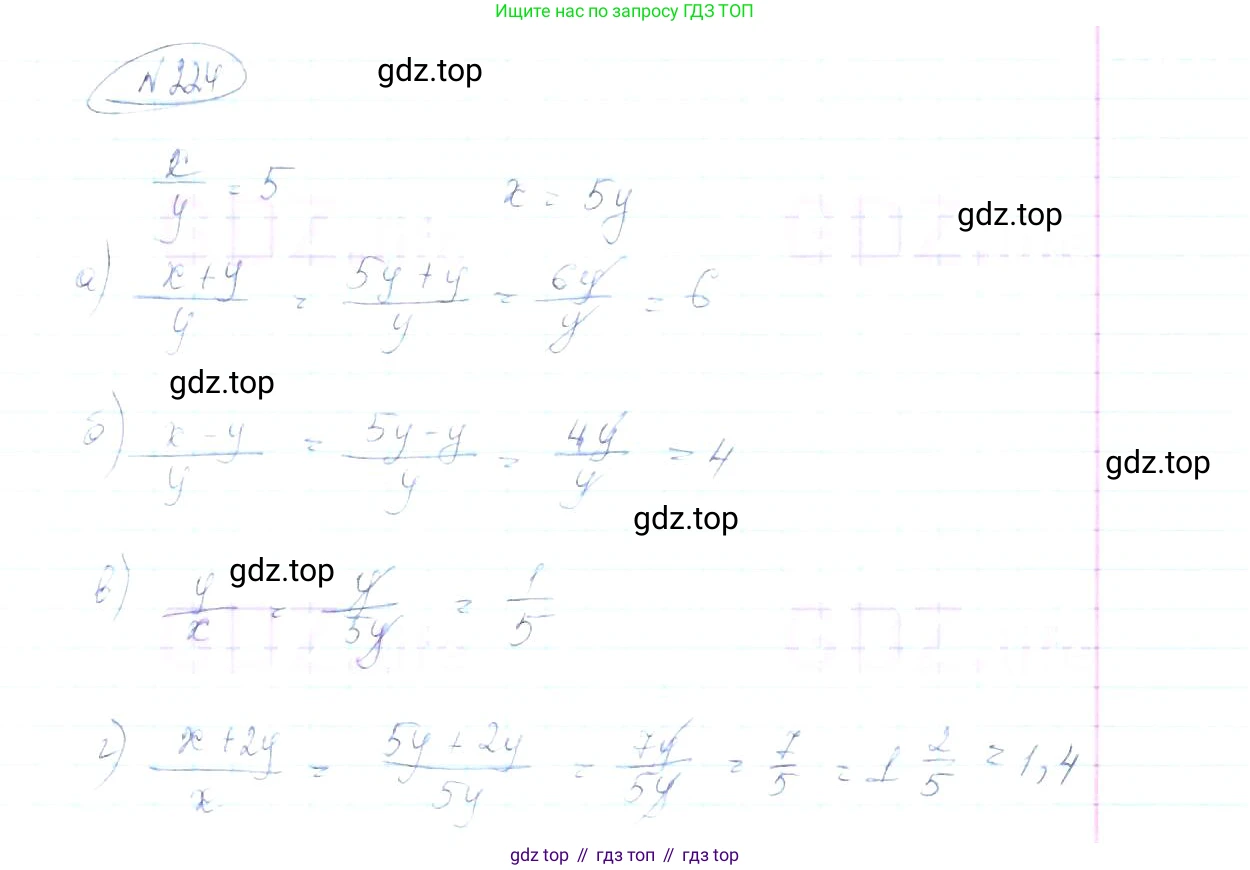 Ищите нас по запросу ГДЗ ТОП
N 224
gdz.top
x/y = 5    x = 5y
gdz.top
а) (x + y)/y = (5y + y)/y = 6y/y = 6
gdz.top
б) (x - y)/y = (5y - y)/y = 4y/y = 4
gdz.top
gdz.top
gdz.top
в) y/x = y/5y = 1/5
г) (x + 2y)/x = (5y + 2y)/5y = 7y/5y = 7/5 = 1 2/5 = 1,4
gdz top // гдз топ // гдз top